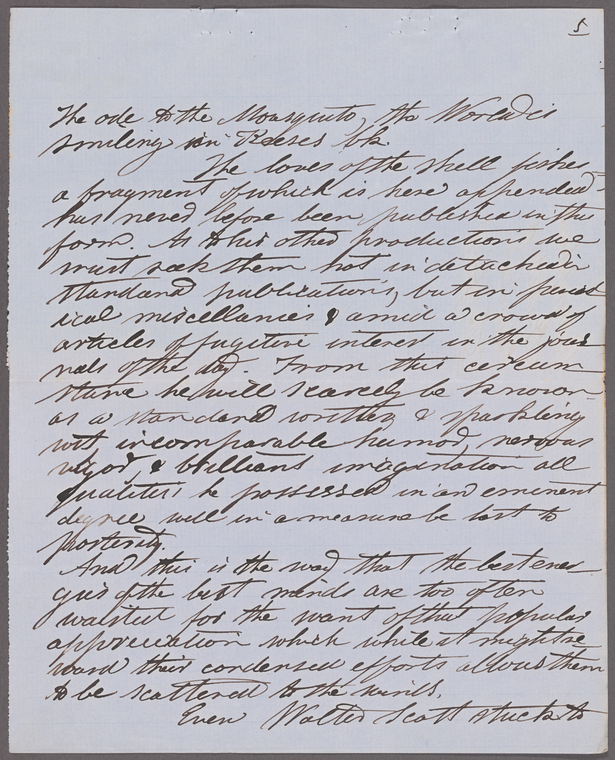 5
The ode to the Mousquito, the World is
smiling in Reeses bk.
The loves of the shell fishes
a fragment of which is here appended
has never before been published in this
form. As to his other productions we
must seek them not in detached or
standard publications, but in period
ical miscellanies & amid a crowd of
articles of fugitive interest in the jour
nals of the day. From this circum
stance he will scarcely be known
as a standard writer & sparkling
wit incomparable humor, nervous
vigor, & brilliant imagination all
qualities he possessed in an eminent
degree will in a measure be lost to
posterity.
And this is the way that the best ener
gies of the best minds are too often
wasted for the want of that popular
appreciation which while it might re
ward their condensed efforts allows them
to be scattered to the winds.
Even Walter Scott stuck to